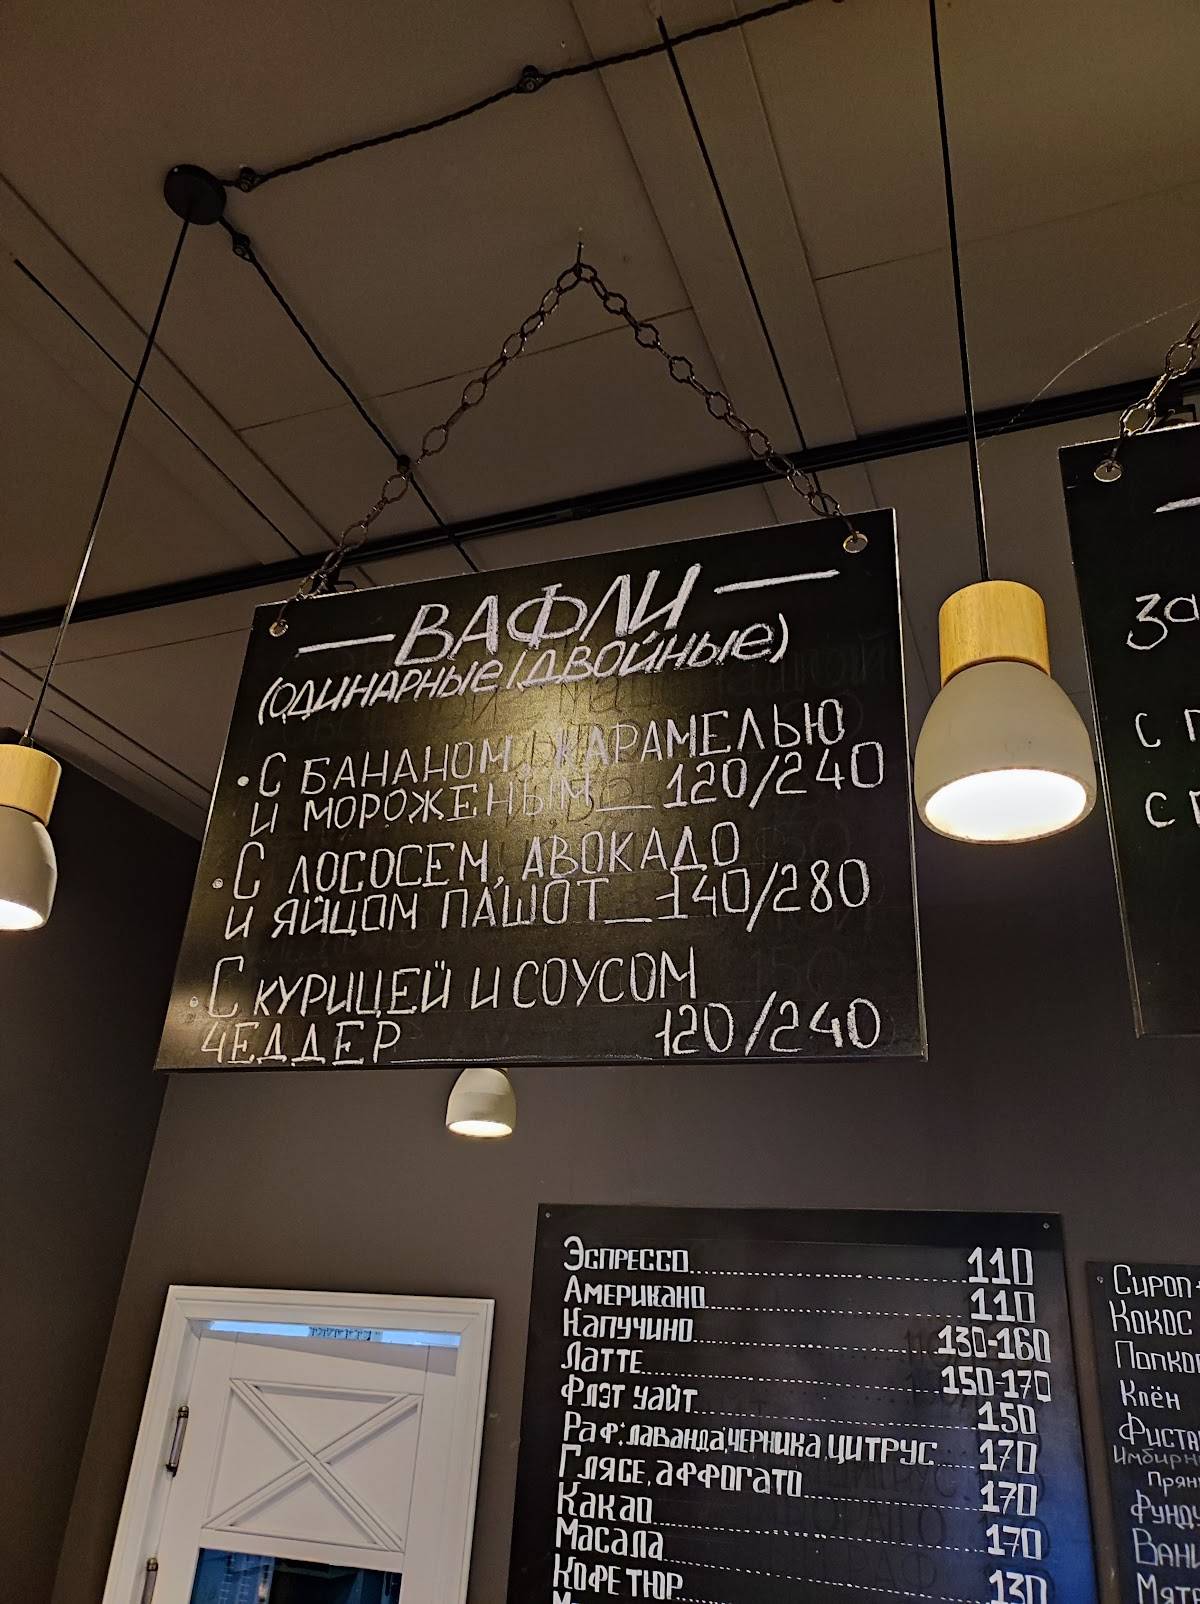 ВАФЛИ
(ОДИНАРНЫЕ/ДВОЙНЫЕ)
• С БАНАНОМ, КАРАМЕЛЬЮ
И МОРОЖЕНЫМ 120/240
• С ЛОСОСЕМ, АВОКАДО
И ЯЙЦОМ ПАШОТ 140/280
• С КУРИЦЕЙ И СОУСОМ
ЧЕДДЕР 120/240
С
С
ЭСПРЕССО 110
АМЕРИКАНО 110
КАПУЧИНО 130-160
ЛАТТЕ 150-170
ФЛЭТ УАЙТ 150
РАФ: ЛАВАНДА, ЧЕРНИКА, ЦИТРУС 170
ГЛЯСЕ, АФФОГАТО 170
КАКАО 170
МАСАЛА
КОФЕ ТЮР 130
СИРОП
КОКОС
КЛЁН